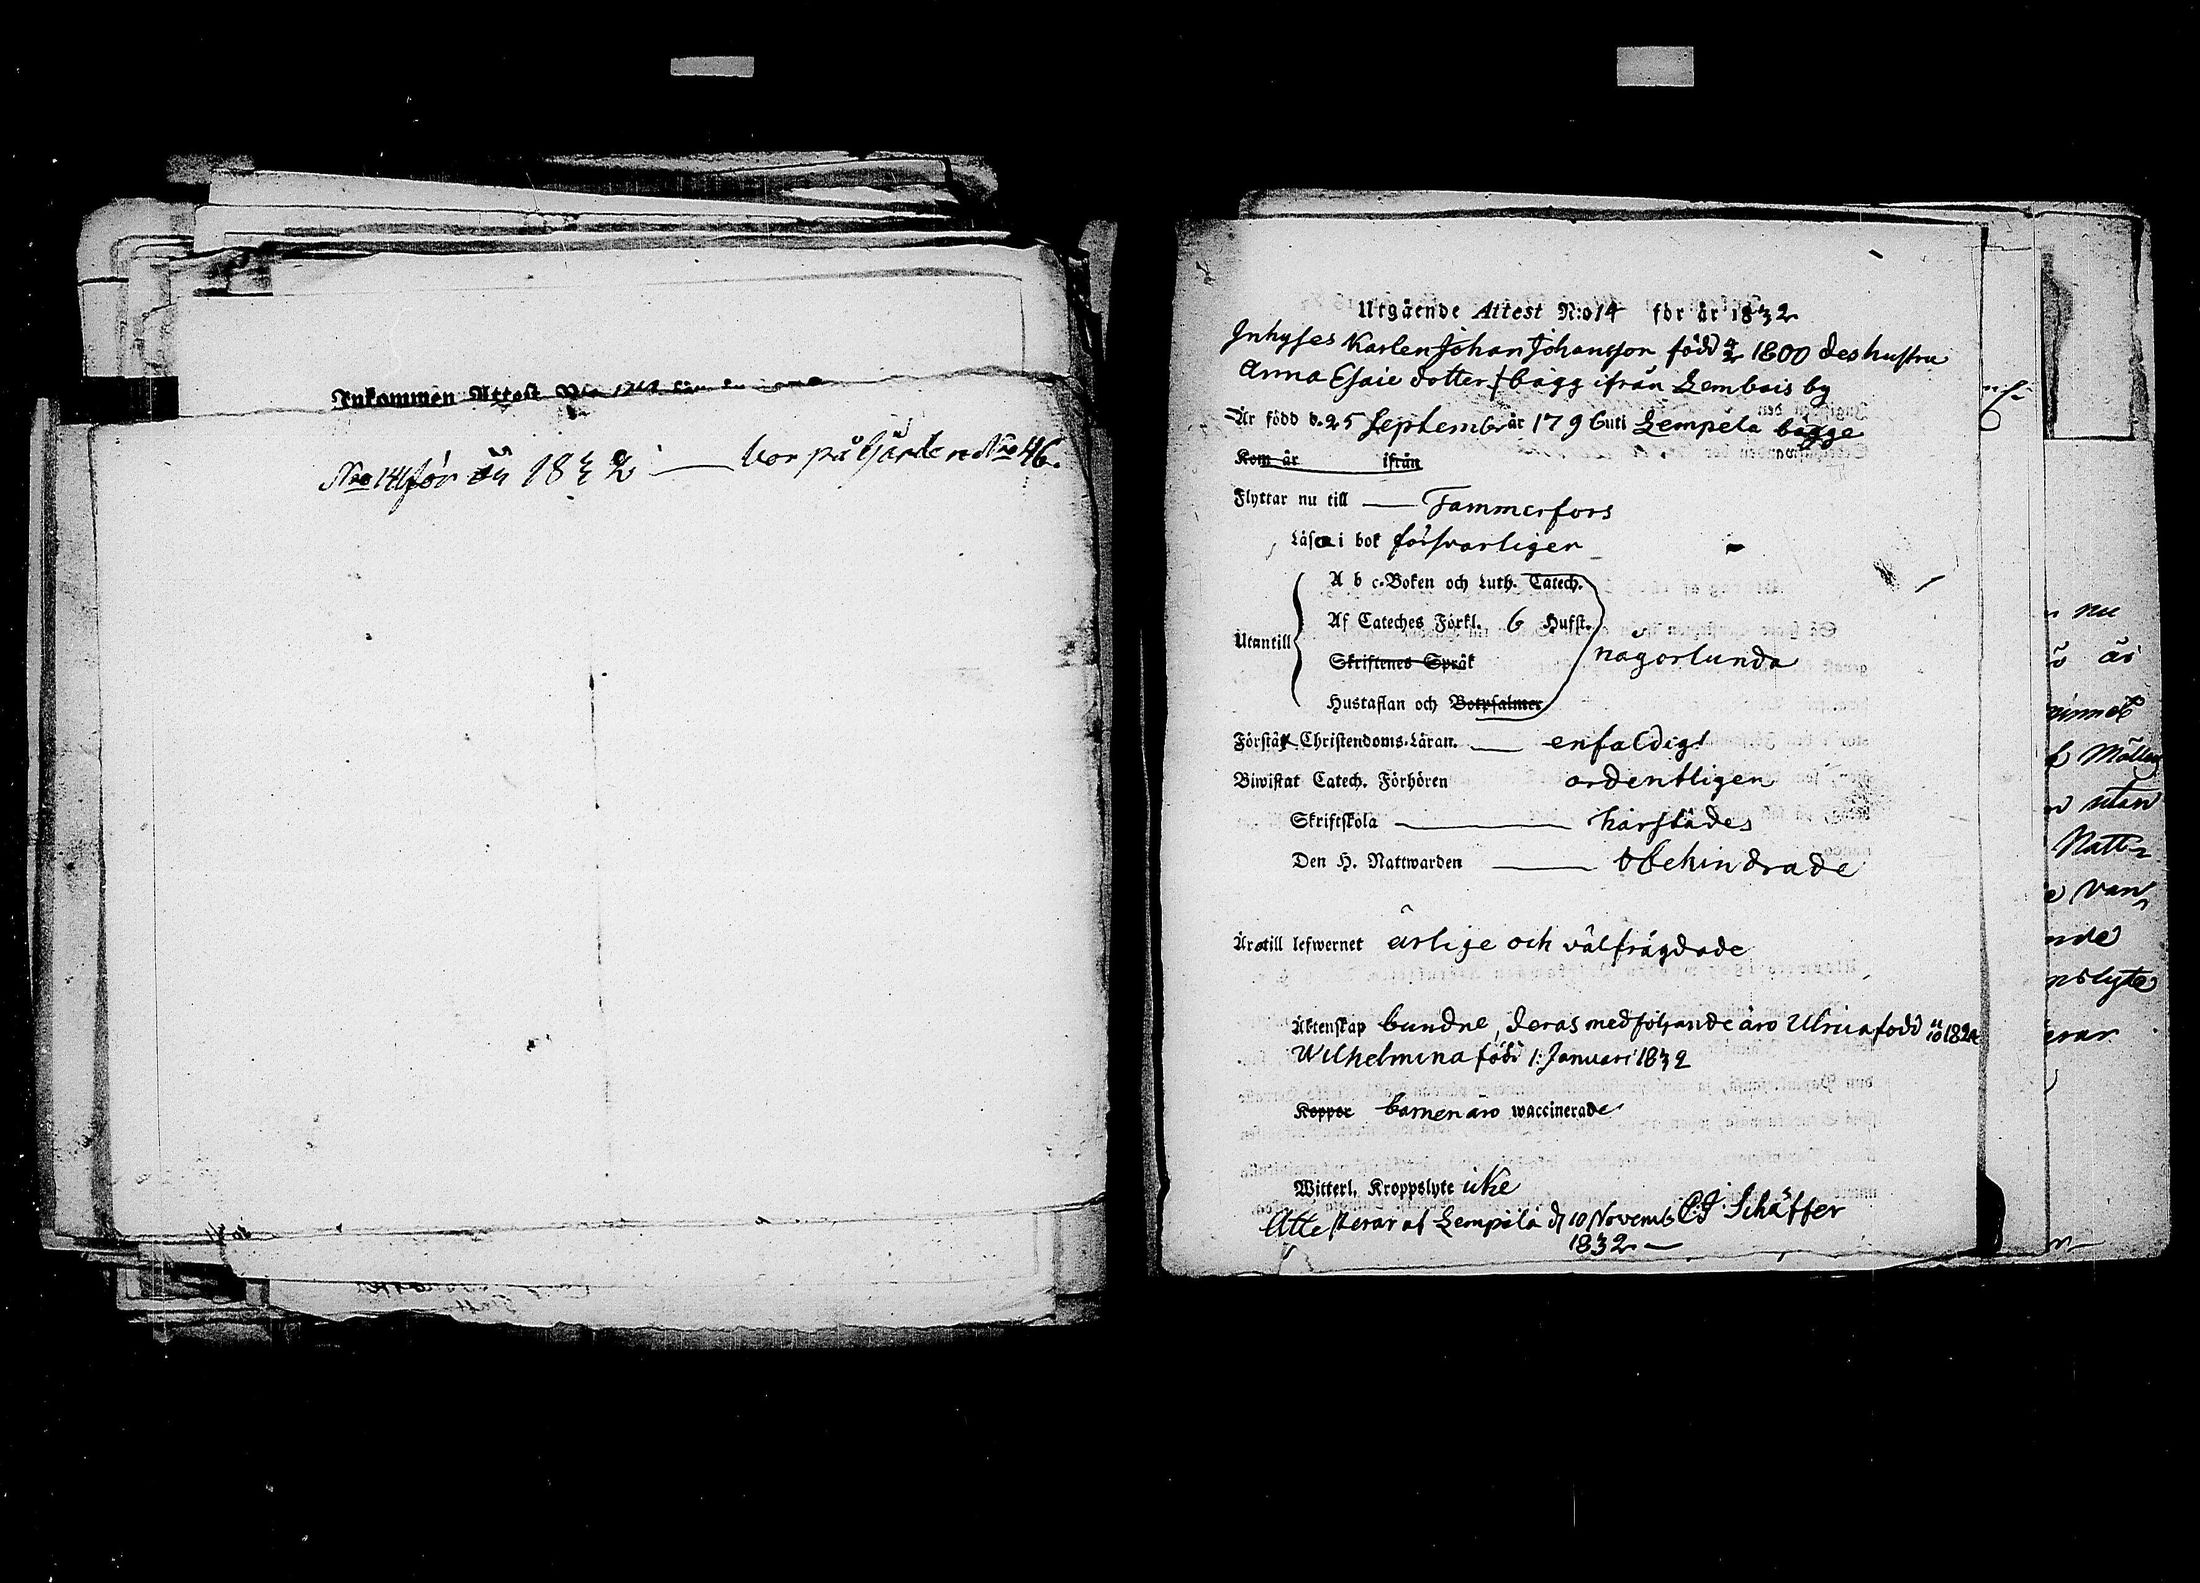 Inkommen Attest
No 141 för år 1832 — bor på Gården No 46.
Utgäende Attest N:o 14 för år 1832
Inhyses Karlen Johan Johansson född 4/2 1800 des hustru
Anna Esaie dotter bägg ifrån Lembois by
Är född d. 25 Septembr år 1796 uti Lempela bägge
Kom år ifrån
Flyttar nu till — Tammerfors
Läsa i bok försvarligen
A b c-Boken och Luth. Catech.
Af Cateches Förkl. 6 Hufst.
Utantill
någorlunda
Skriftenes Språk
Hustaflan och Botpsalmer
Förstå Christendoms-Läran. — enfaldigt
Biwistat Catech. Förhören ordentligen
Skriftskola — härstädes
Den H. Nattwarden — obehindrade
Äro till lefwernet ärlige och välfrägdade
Äktenskap bundne, deras medföljande äro Ulrica född 11/10 1824
Wilhelmina född 1. Januari 1832
Koppor barnen äro waccinerade
Witterl. Kroppslyte icke
Attesterar af Lempälä d 10 Novemb. C J Schäffer
1832 —
nu
är
utan
Natt-